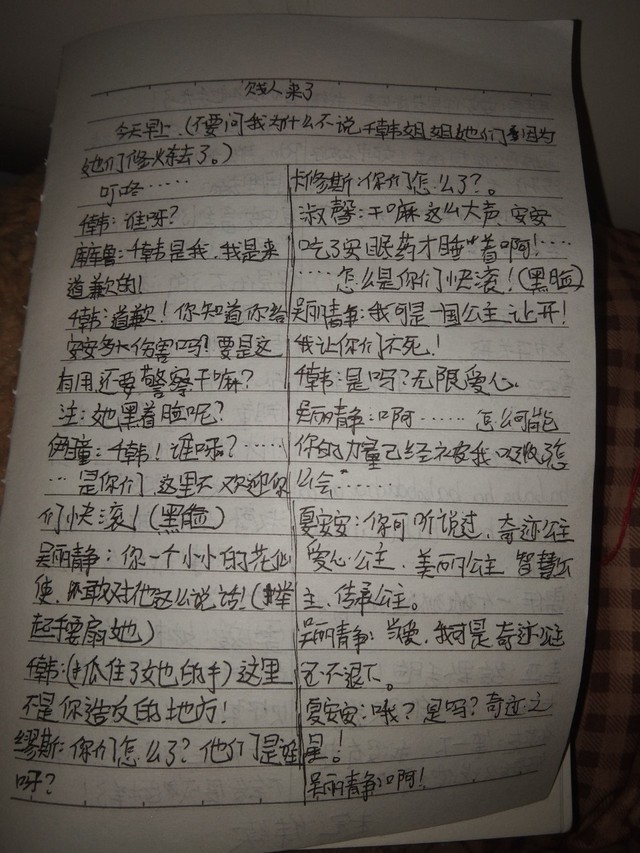 贱人来了
今天早上,(不要问我为什么不说千韩姐姐她们,因为
她们修炼去了。)
叮咚……
千韩:谁呀?
库库鲁:千韩是我,我是来
道歉的!
千韩:道歉!你知道你给
安安多大伤害吗?要是这
有用,还要警察干嘛?
注:她黑着脸呢?
伊瞳:千韩!谁呀?……
…是你们,这里不欢迎你
们快滚!(黑脸)
吴丽静:你一个小小的花仙
使,敢对他这么说话!(举
起手要扇她)
千韩:(抓住了她的手)这里
不是你造反的地方!
缪斯:你们怎么了?他们是谁
呀?
卡修斯:你们怎么了?。
淑馨:干嘛这么大声,安安
吃了安眠药才睡着啊!……
……怎么是你们快滚!(黑脸)
吴丽静:我可是一国公主让开!
我让你们不死!
千韩:是吗?无限爱心。
吴丽静:啊……怎么可能
你的力量已经被我吸收了怎
么会……
夏安安:你可听说过,奇迹公主
爱心公主,美丽公主,智慧公
主,传承公主。
吴丽静:当然,我可是奇迹公主
还不退下。
夏安安:哦?是吗?奇迹之
星!
吴丽静:啊!